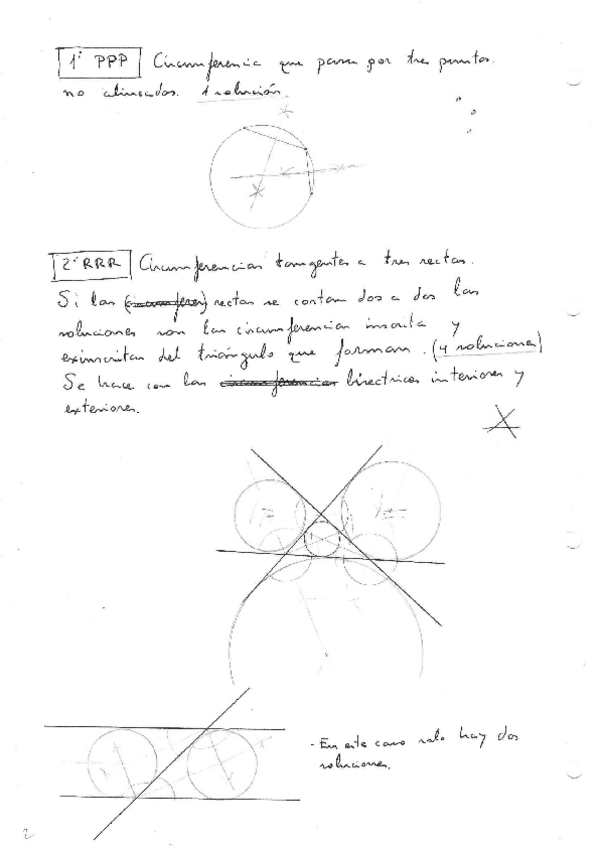 1º PPP Circunferencia que pasa por tres puntos
no alineados. 1 solución.
2º RRR Circunferencias tangentes a tres rectas.
Si las (circunferen) rectas se cortan dos a dos las
soluciones son las circunferencias inscrita y
exinscritas del triángulo que forman. (4 soluciones)
Se hace con las circunferencias bisectrices interiores y
exteriores.
- En este caso solo hay dos
soluciones.
2